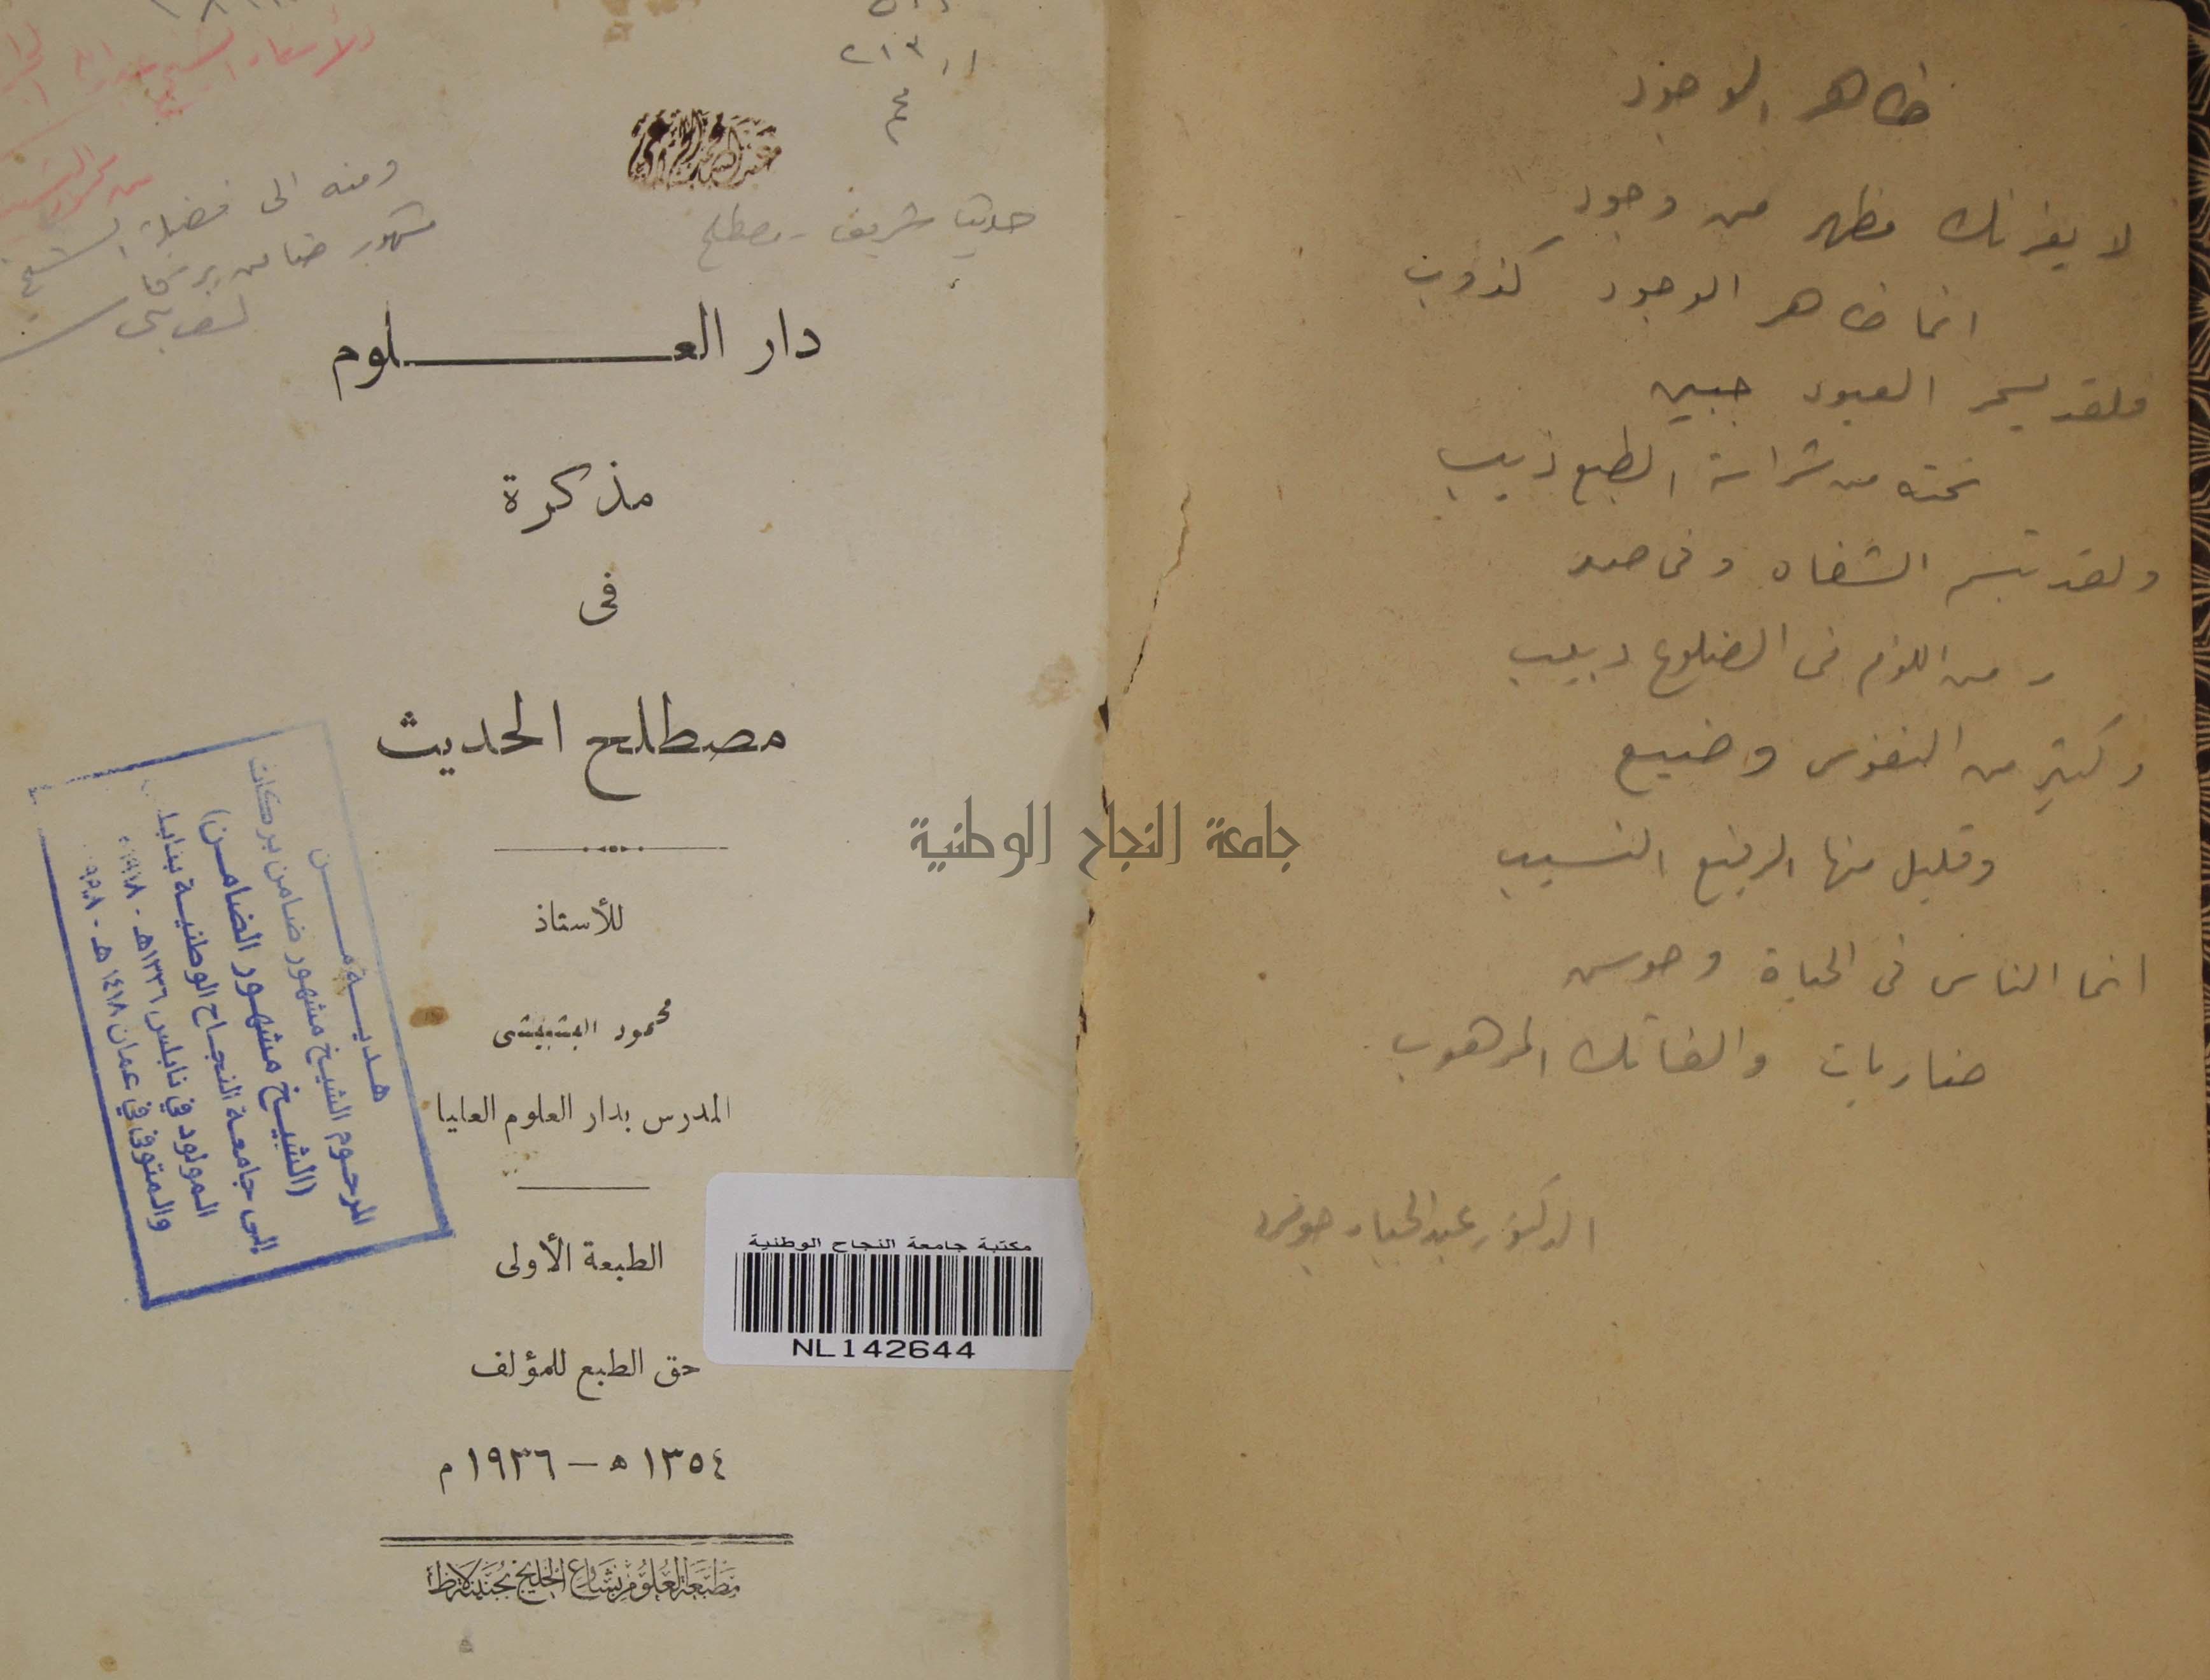 ظاهر الوجود
لا يغرنك مظهر من وجود
انما ظاهر الوجود كذوب
فلقد يسحر العيون جبين
تحته من شراسة الطبع ذيب
ولقد تبسم الشفاه وفى صد
ر من اللؤم فى الضلوع دبيب
وكثير من النفوس وضيع
وقليل منها الرفيع النسيب
انما الناس فى الحياة وحوش
ضاريات والفاتك المرهوب
الدكتور عبد الجبار جومرد
٢١٣,١
ومنه الى فضيلة الشيخ
مشهور ضامن بركات
حديث شريف - مصطلح
دار العلوم
مذكرة
فى
مصطلح الحديث
للأستاذ
محمود البشبيشى
المدرس بدار العلوم العليا
الطبعة الأولى
حق الطبع للمؤلف
١٣٥٤ ه – ١٩٣٦ م
مطبعة العلوم بشارع الخليج بجنينة لاظ
هدية من
المرحوم الشيخ مشهور ضامن بركات
(الشيخ مشهور الضامن)
إلى جامعة النجاح الوطنية بنابلس
المولود في نابلس ١٣٣٦هـ - ١٩١٨م
والمتوفى في عمان ١٤١٨هـ -
مكتبة جامعة النجاح الوطنية
NL142644
جامعة النجاح الوطنية